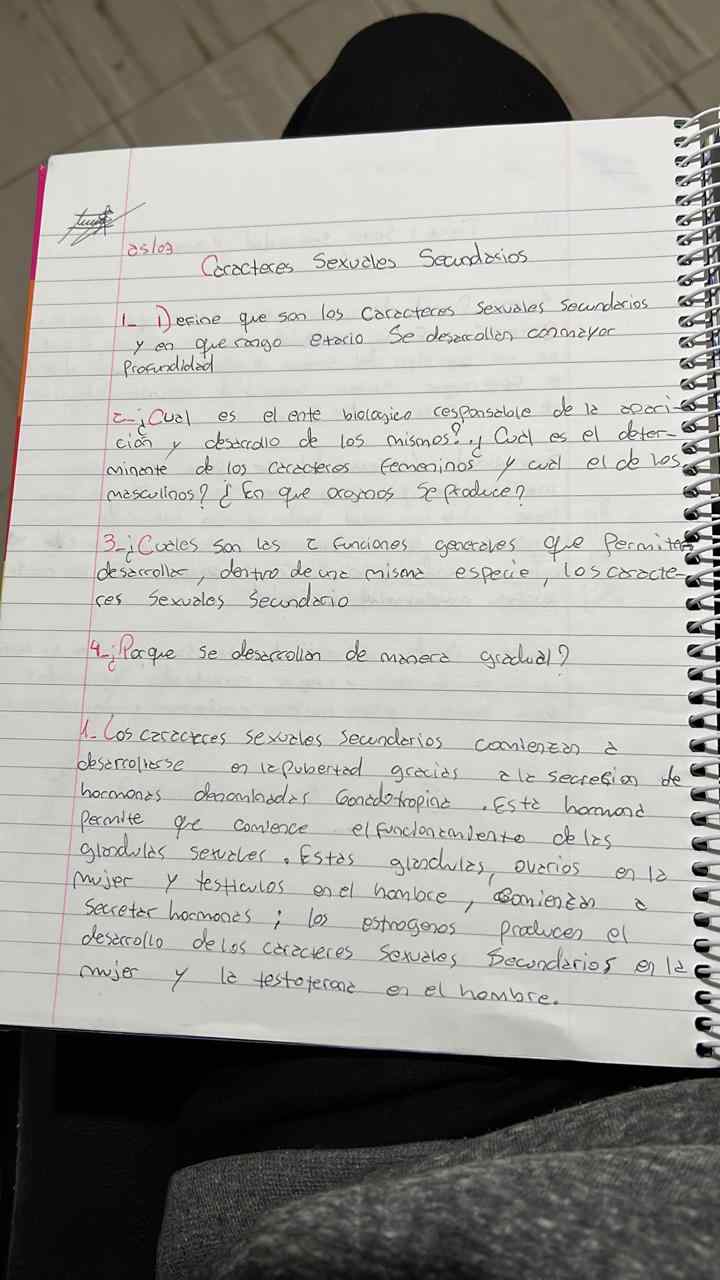 25/03
Caracteres Sexuales Secundarios
1- Define que son los Caracteres Sexuales Secundarios
y en que rango etario Se desarrollan con mayor
Profundidad
2-¿Cual es el ente biologico responsable de la apari-
ción y desarrollo de los mismos? ¿Cual es el deter-
minante de los caracteres femeninos y cual el de los
masculinos? ¿En que organos Se produce?
3-¿Cuales son las 2 funciones generales que Permiten
desarrollar, dentro de una misma especie, los caracte-
res Sexuales Secundario
4-¿Porque se desarrollan de manera gradual?
1- Los caracteres sexuales Secundarios comienzan a
desarrollarse en la pubertad gracias a la secresion de
hormonas denominadas Gonadotropina. Esta hormona
Permite que comience el funcionamiento de las
glandulas sexuales. Estas glandulas, ovarios en la
mujer y testiculos en el hombre, comienzan a
Secretar hormonas; los estrogenos producen el
desarrollo de los caracteres Sexuales Secundarios en la
mujer y la testoterona en el hombre.